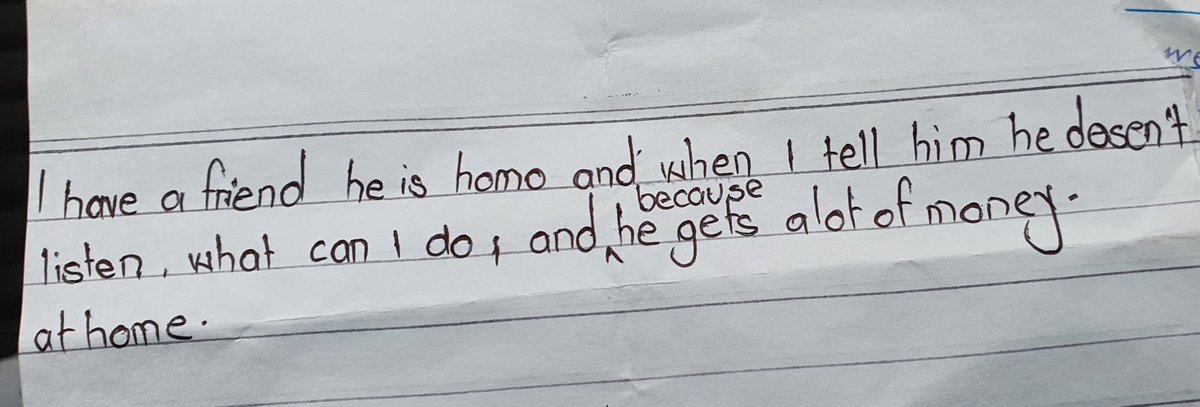 we
I have a friend he is homo and when I tell him he dosen't
listen, what can I do, and because he gets alot of money.
at home.